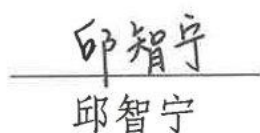 邱智宁
邱智宁